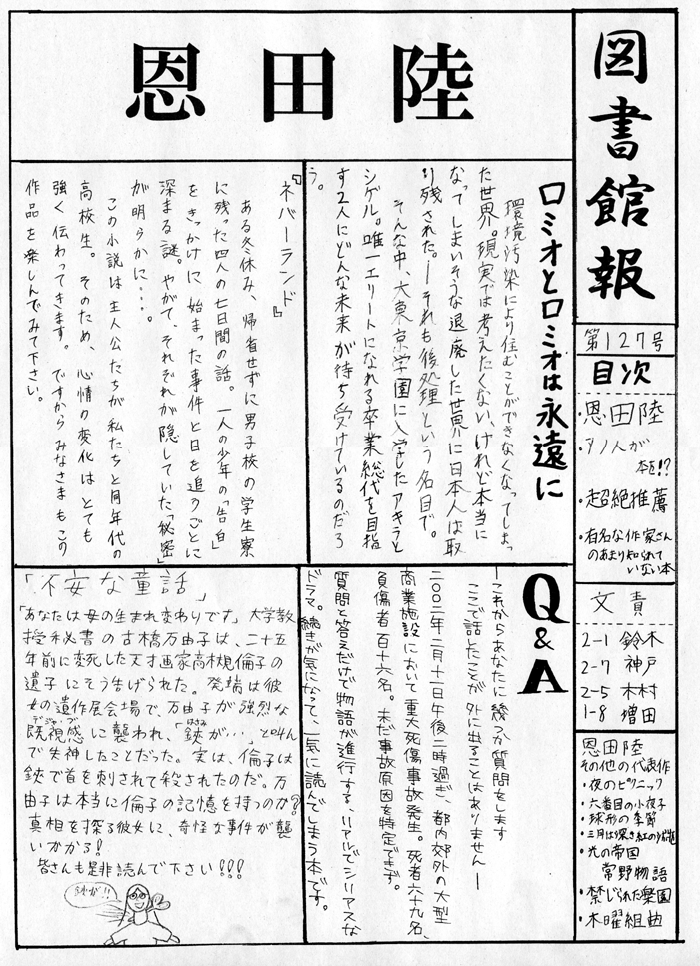 図書館報
第127号
目次
・恩田陸
・アノ人が
本を!?
・超絶推薦
・有名な作家さん
のあまり知られて
いない本
文責
2-1 鈴木
2-7 神戸
2-5 木村
1-8 増田
恩田陸
その他の代表作
・夜のピクニック
・六番目の小夜子
・球形の季節
・三月は深き紅の淵を
・光の帝国
常野物語
・禁じられた楽園
・木曜組曲
恩田陸
ロミオとロミオは永遠に
環境汚染により住むことができなくなってしまっ
た世界。現実では考えたくない、けれど本当に
なってしまいそうな退廃した世界に日本人は取
り残された。―それも後処理という名目で。
そんな中、大東京学園に入学したアキラと
シゲル。唯一エリートになれる卒業総代を目指
す2人にどんな未来が待ち受けているのだろ
う。
『ネバーランド』
ある冬休み、帰省せずに男子校の学生寮
に残った四人の七日間の話。一人の少年の「告白」
をきっかけに、始まった事件と日を追うごとに
深まる謎。やがて、それぞれが隠していた「秘密」
が明らかに・・・。
この小説は主人公たちが私たちと同年代の
高校生。そのため、心情の変化はとても
強く伝わってきます。ですからみなさまもこの
作品を楽しんでみて下さい。
Q&A
―これからあなたに幾つか質問をします
ここで話したことが外に出ることはありません―
二〇〇二年二月十一日午後二時過ぎ、都内郊外の大型
商業施設において重大死傷事故発生。死者六十九名、
負傷者百十六名。未だ事故原因を特定できず。
質問と答えだけで物語が進行する、リアルでシリアスな
ドラマ。続きが気になって、一気に読んでしまう本です。
「不安な童話」
「あなたは母の生まれ変わりです」大学教
授秘書の古橋万由子は、二十五
年前に変死した天才画家高槻倫子の
遺子にそう告げられた。発端は彼
女の遺作展会場で、万由子が強烈な
既視感に襲われ、「鋏が・・・」と叫ん
デジャ・ブ
はさみ
で失神したことだった。実は、倫子は
鋏で首を刺されて殺されたのだ。万
由子は本当に倫子の記憶を持つのか?
真相を探る彼女に、奇怪な事件が襲
いかかる!
皆さんも是非読んで下さい!!!
鋏が!!